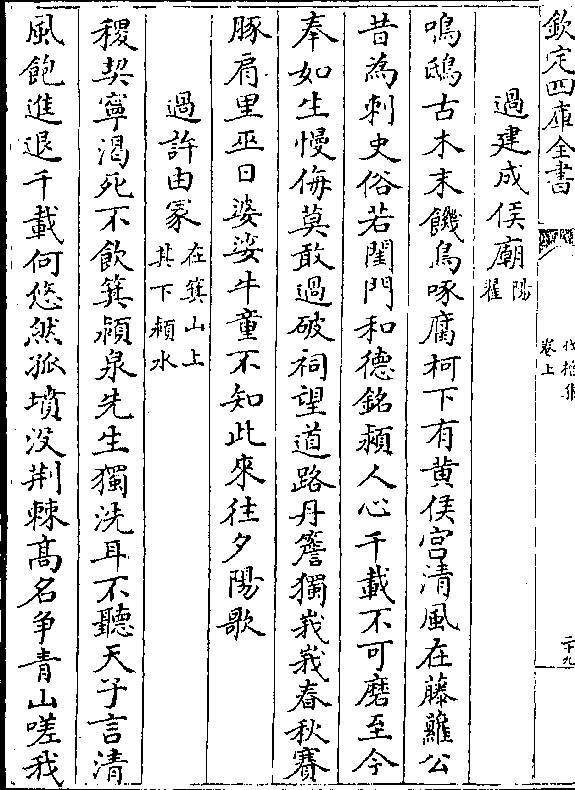 欽定四庫全書
伐檀集
卷上
二十九
過建成侯廟陽翟
鳴鴟古木末饑烏啄腐柯下有黄侯宫清風在藤蘿公
昔為刺史俗若閨門和德銘潁人心千載不可磨至今
奉如生慢侮莫敢過破祠望道路丹簷獨峩峩春秋賽
豚肩里巫日婆娑牛童不知此來往夕陽歌
過許由冢在箕山上其下潁水
稷契寧渴死不飲箕潁泉先生獨洗耳不聽天子言清
風飽進退千載何悠然孤墳没荆棘髙名争青山嗟我